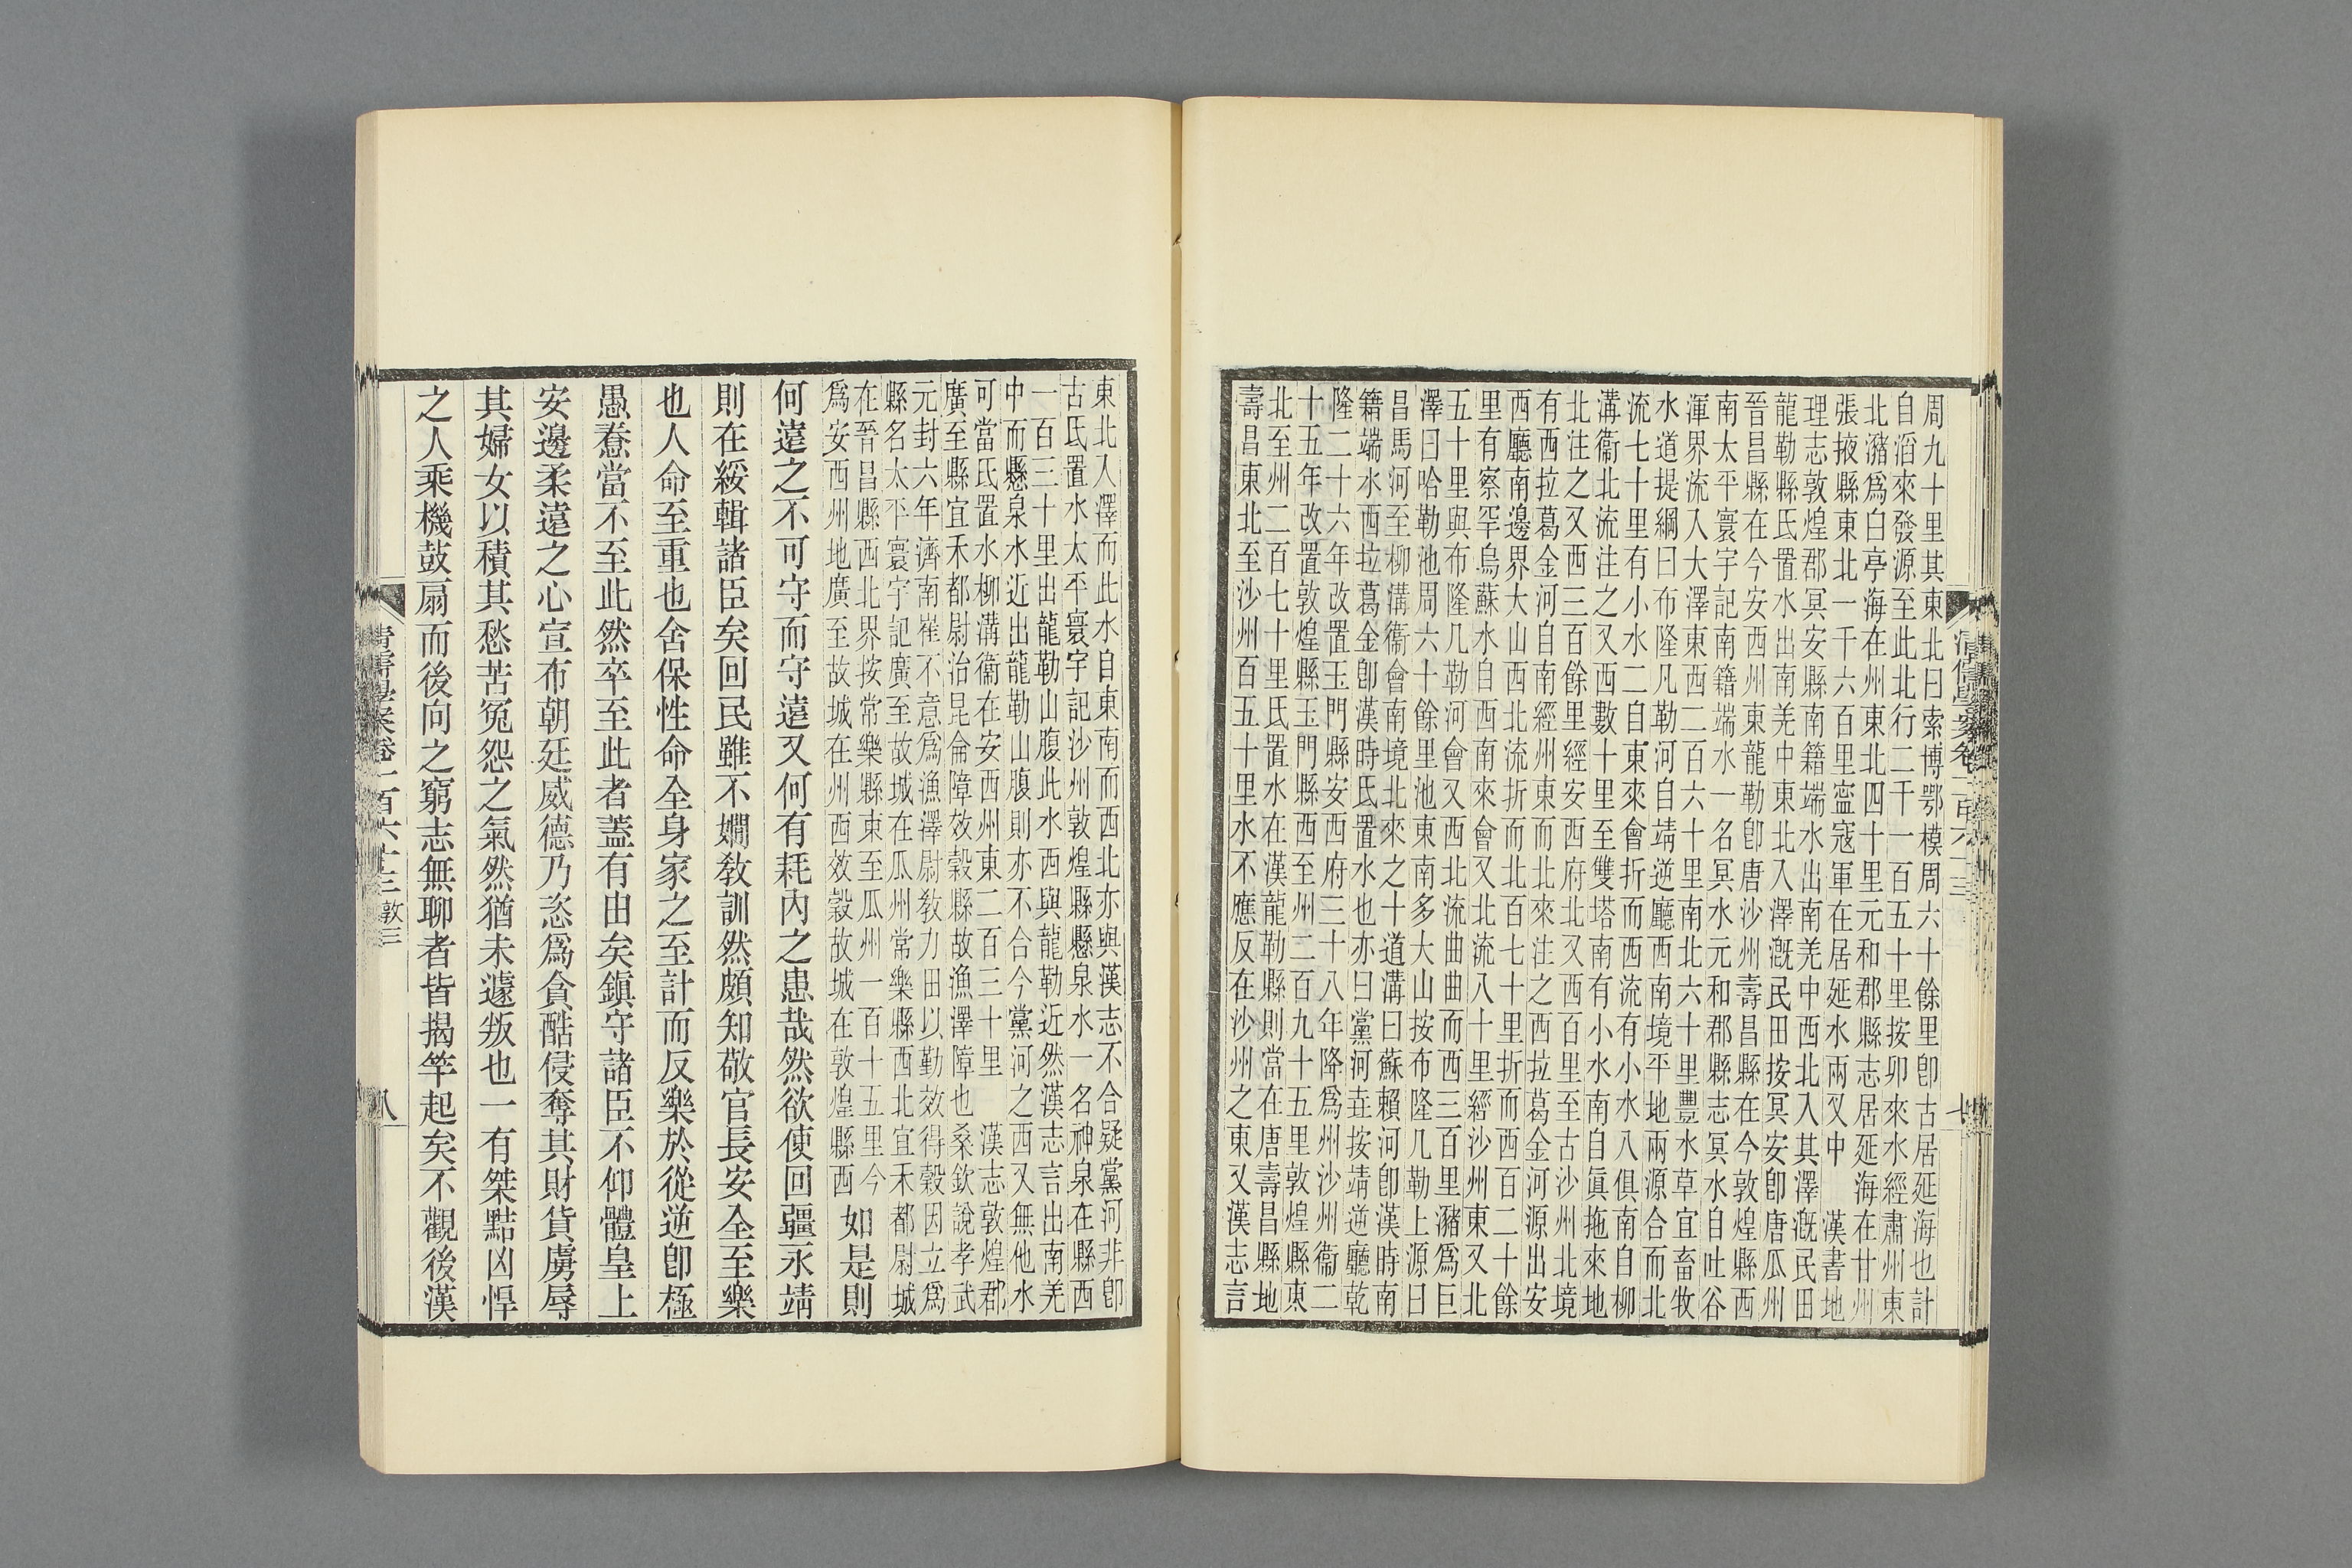 周九十里其東北曰索博鄂模周六十餘里卽古居延海也計
自滔來發源至此北行二千一百五十里按卯來水經肅州東
北瀦爲白亭海在州東北四十里元和郡縣志居延海在甘州
張掖縣東北一千六百里寍寇軍在居延水兩叉中　漢書地
理志敦煌郡冥安縣南籍端水出南羌中西北入其澤溉民田
龍勒縣氐置水出南羌中東北入澤溉民田按冥安卽唐瓜州
晉昌縣在今安西州東龍勒卽唐沙州壽昌縣在今敦煌縣西
南太平寰宇記南籍端水一名冥水元和郡縣志冥水自吐谷
渾界流入大澤東西二百六十里南北六十里豐水草宜畜牧
水道提綱曰布隆凡勒河自靖逆廳西南境平地兩源合而北
流七十里有小水二自東來會折而西流有小水八俱南自柳
溝衞北流注之又西數十里至雙塔南有小水南自眞拖來地
北注之又西三百餘里經安西府北又西百里至古沙州北境
有西拉葛金河自南經州東而北來注之西拉葛金河源出安
西廳南邊界大山西北流折而北百七十里折而西百二十餘
里有察罕烏蘇水自西南來會又北流八十里經沙州東又北
五十里與布隆几勒河會又西北流曲曲而西三百里瀦爲巨
澤曰哈勒池周六十餘里池東南多大山按布隆几勒上源曰
昌馬河至柳溝衞會南境北來之十道溝曰蘇賴河卽漢時南
籍端水西拉葛金卽漢時氐置水也亦曰黨河壵按靖逆廳乾
隆二十六年改置玉門縣安西府三十八年降爲州沙州衞二
十五年改置敦煌縣玉門縣西至州二百九十五里敦煌縣東
北至州二百七十里氐置水在漢龍勒縣則當在唐壽昌縣地
壽昌東北至沙州百五十里水不應反在沙州之東又漢志言
東北入澤而此水自東南而西北亦與漢志不合疑黨河非卽
古氐置水太平寰宇記沙州敦煌縣懸泉水一名神泉在縣西
一百三十里出龍勒山腹此水西與龍勒近然漢志言出南羌
中而懸泉水近出龍勒山腹則亦不合今黨河之西又無他水
可當氐置水柳溝衞在安西州東二百三十里　漢志敦煌郡
廣至縣宜禾都尉治昆侖障效穀縣故漁澤障也桑欽說孝武
元封六年濟南崔不意爲漁澤尉敎力田以勤效得穀因立爲
縣名太平寰宇記廣至故城在瓜州常樂縣西北宜禾都尉城
在晉昌縣西北界按常樂縣東至瓜州一百十五里今
爲安西州地廣至故城在州西效穀故城在敦煌縣西
如是則
何遠之不可守而守遠又何有耗內之患哉然欲使回疆永靖
則在綏輯諸臣矣回民雖不嫺敎訓然頗知敬官長安全至樂
也人命至重也舍保性命全身家之至計而反樂於從逆卽極
愚惷當不至此然卒至此者蓋有由矣鎭守諸臣不仰體皇上
安邊柔遠之心宣布朝廷威德乃恣爲貪酷侵奪其財貨虜辱
其婦女以積其愁苦冤怨之氣然猶未遽叛也一有桀黠凶悍
之人乘機鼓扇而後向之窮志無聊者皆揭竿起矣不觀後漢